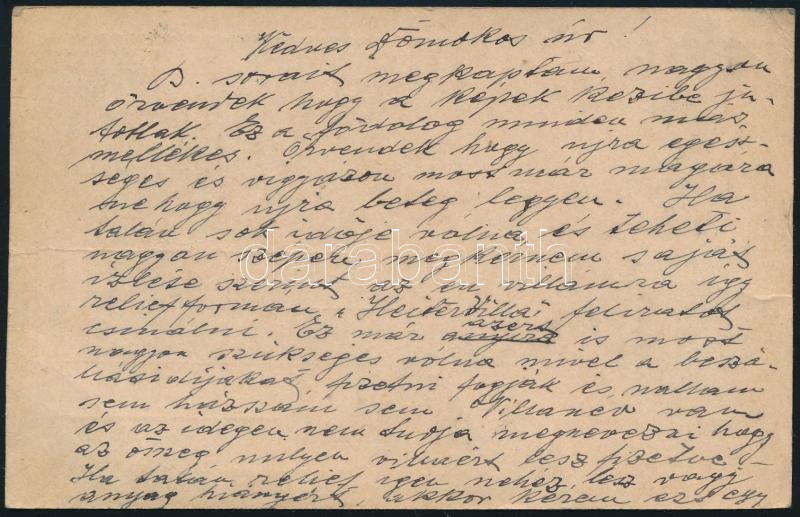 Kedves Dömokos úr!
B. sorait megkaptam, nagyon
örvendek hogy a képek kezibe ju-
tottak. Ez a fődolog minden más
mellékes. Örvendek hogy ujra egés-
séges és vigyázzon most már magára
nehogy ujra beteg legyen. Ha
talán sok ideje volna és teheti
nagyon szépen megkérném saját
izlése szerint az én villámra így
relief forman "Heiter Villa" feliratot
csinálni. Ez már azért is most
nagyon szükséges volna mivel a
házsidíjakat fizetni fogják és nállam
sem házszám sem Villanév van
és az idegen nem tudja megnevezni hogy
az összeg milyen viláért lesz fizetve -
Ha talán relief igen nehéz lesz vagy
anyag hiányért, akkor kérem egy
darabanth